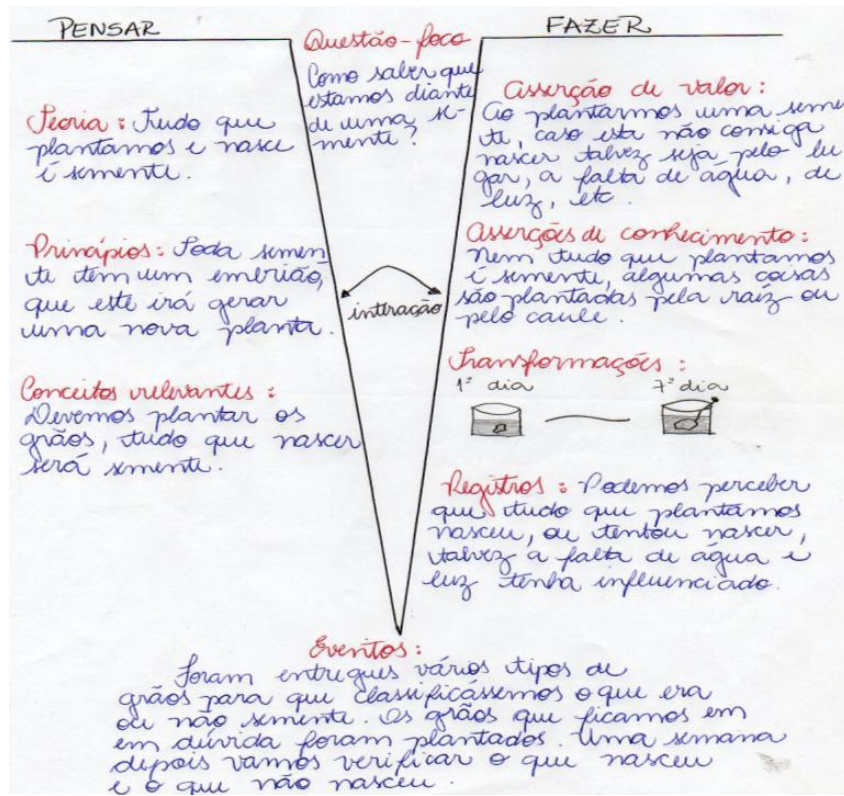 PENSAR
Teoria: Tudo que
plantamos e nasce
é semente.
Princípios: Toda semen
te tem um embrião,
que este irá gerar
uma nova planta.
Conceitos relevantes:
Devemos plantar os
grãos, tudo que nascer
será semente.
Questão-foco
Como saber que
estamos diante
de uma se-
mente?
interação
FAZER
Asserção de valor:
Ao plantarmos uma seme
te, caso esta não consiga
nascer talvez seja pelo lu
gar, a falta de água, de
luz, etc.
Asserções de conhecimento:
Nem tudo que plantamos
é semente, algumas coisas
são plantadas pela raiz ou
pelo caule.
Transformações:
1º dia 7º dia
Registros: Podemos perceber
que tudo que plantamos
nasceu, ou tentou nascer,
talvez a falta de água e
luz tenha influenciado.
Eventos:
Foram entregues vários tipos de
grãos para que classificássemos o que era
ou não semente. Os grãos que ficamos em
em dúvida foram plantados. Uma semana
depois vamos verificar o que nasceu
e o que não nasceu.